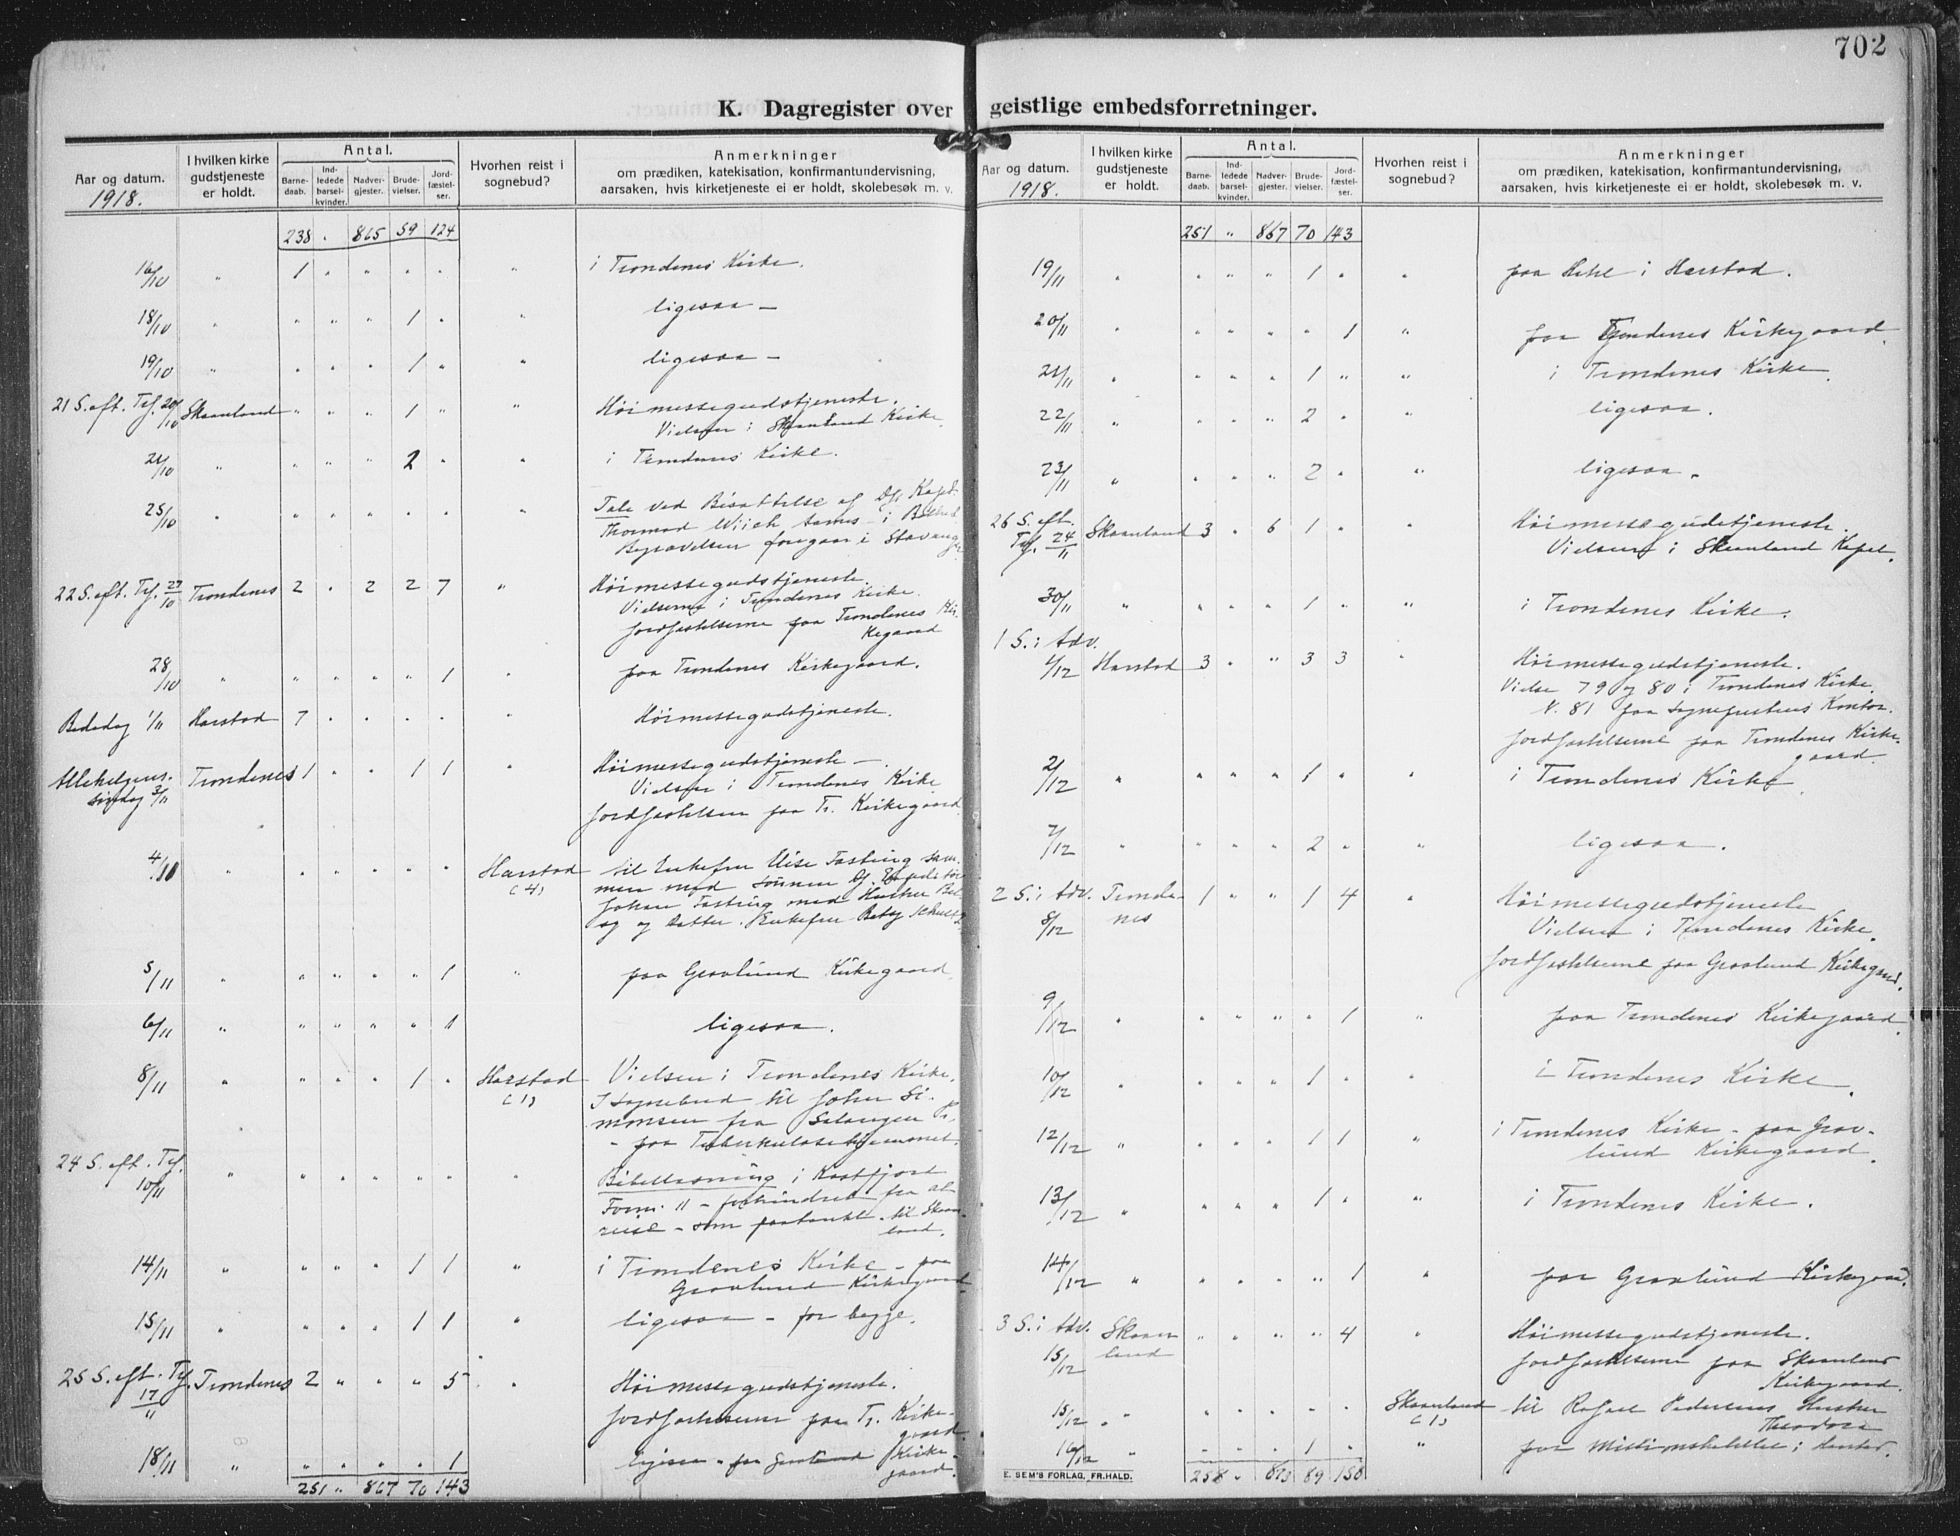 702
K. Dagregister over geistlige embedsforretninger.
Aar og datum.
1918.
I hvilken kirke
gudstjeneste
er holdt.
Antal.
Barne-
daab.
Ind-
ledede
barsel-
kvinder.
Nadver-
gjester.
Brude-
vielser.
Jord-
fæstel-
ser.
Hvorhen reist i
sognebud?
Anmerkninger
om prædiken, katekisation, konfirmantundervisning,
aarsaken, hvis kirketjeneste ei er holdt, skolebesøk m. v.
238 " 865 59 124
16/10 " 1 " " " " " i Trondenes Kirke.
18/10 " " " " 1 " " ligesaa —
19/10 " " " " 1 " " ligesaa —
21 S. eft. Tf. 20/10 Skaanland " " " 1 " " Høimessegudstjeneste.
Vielsen i Skaanland Kirke.
21/10 " " " " 2 " " i Trondenes Kirke.
25/10 " " " " " " " Tale ved Bisættelse af
Thormod Wiich Aarnes - i
Begravelsen foregaar i Stavanger
22 S. eft. Tf. 27/10 Trondenes 2 " 2 2 7 " Høimessegudstjeneste.
Vielserne i Trondenes Kirke.
Jordfæstelserne paa Trondenes Kir-
kegaard
28/10 " " " " " 1 " paa Trondenes Kirkegaard.
Bededag 1/11 Harstad 7 " " " " " Høimessegudstjeneste.
Allehelgens-
søndag 3/11 Trondenes 1 " " 1 1 " Høimessegudstjeneste —
Vielsen i Trondenes Kirke
Jordfæstelsen paa Tr. Kirkegaard.
4/11 " " " " " " Harstad
(4)
til Enkefru Elise Tastrup sam-
men med sønnen
Johan Tastrup med Hustru
og Datter. Enkefru
5/11 " " " " " 1 " paa Gravlund Kirkegaard.
6/11 " " " " " 1 " ligesaa.
8/11 " " " " 1 " Harstad
(1)
Vielsen i Trondenes Kirke.
I Sognebud til Johan Si-
monsen fra Salangen
- paa Tuberkulosehjemmet.
24 S. eft. Tf.
10/11 " " " " " " " Bibellæsning i Kasfjord
Form. 11 - forhindret fra af-
reise - som paatænkt - til Skaan-
land.
14/11 " " " " 1 1 " i Trondenes Kirke - paa
Gravlund Kirkegaard
15/11 " " " " 1 1 " ligesaa - for begge.
25 S. eft. Tf.
17/11 Trondenes 2 " " " 5 " Høimessegudstjeneste.
Jordfæstelserne paa Tr. Kirke-
gaard.
18/11 " " " " " 1 ligesaa - paa Gravlund Kirke-
gaard.
251 " 867 70 143
Aar og datum.
1918.
I hvilken kirke
gudstjeneste
er holdt.
Antal.
Barne-
daab.
Ind-
ledede
barsel-
kvinder.
Nadver-
gjester.
Brude-
vielser.
Jord-
fæstel-
ser.
Hvorhen reist i
sognebud?
Anmerkninger
om prædiken, katekisation, konfirmantundervisning,
aarsaken, hvis kirketjeneste ei er holdt, skolebesøk m. v.
251 " 867 70 143
19/11 " " " " 1 " " paa i Harstad.
20/11 " " " " " 1 " paa Trondenes Kirkegaard.
21/11 " " " " 1 " " i Trondenes Kirke.
22/11 " " " " 2 " " ligesaa.
23/11 " " " " 2 " " ligesaa.
26 S. eft.
Tf. 24/11 Skaanland 3 " 6 1 " " Høimessegudstjeneste.
Vielsen i Skaanland Kapel.
30/11 " " " " 1 " " i Trondenes Kirke.
1 S. i Adv.
1/12 Harstad 3 " " 3 3 " Høimessegudstjeneste.
Vielse 79 og 80 i Trondenes Kirke.
N. 81 paa Sogneprestens Kontor.
Jordfæstelserne paa Trondenes Kirke-
gaard.
2/12 " " " " 1 " " i Trondenes Kirke.
7/12 " " " " 2 " " ligesaa.
2 S. i Adv.
8/12 Tronde-
nes 1 " " 1 4 " Høimessegudstjeneste
Vielsen i Trondenes Kirke.
Jordfæstelserne paa Gravlund Kirkegaard.
9/12 " " " " " 1 " paa Trondenes Kirkegaard.
10/12 " " " " 1 " " i Trondenes Kirke.
12/12 " " " " 1 1 " i Trondenes Kirke - paa Grav-
lund Kirkegaard.
13/12 " " " " 1 " " i Trondenes Kirke.
14/12 " " " " " 1 " paa Gravlund Kirkegaard.
3 S. i Adv.
15/12 Skaan-
land " " " " 4 " Høimessegudstjeneste.
Jordfæstelserne paa Skaanland
Kirkegaard.
15/12 " " " " " " Skaanland
(1)
til Rafael Pedersens Hustru
Theodora
16/12 " " " " 1 " " paa i
258 " 873 89 158
E. SEM'S FORLAG, FR.HALD.